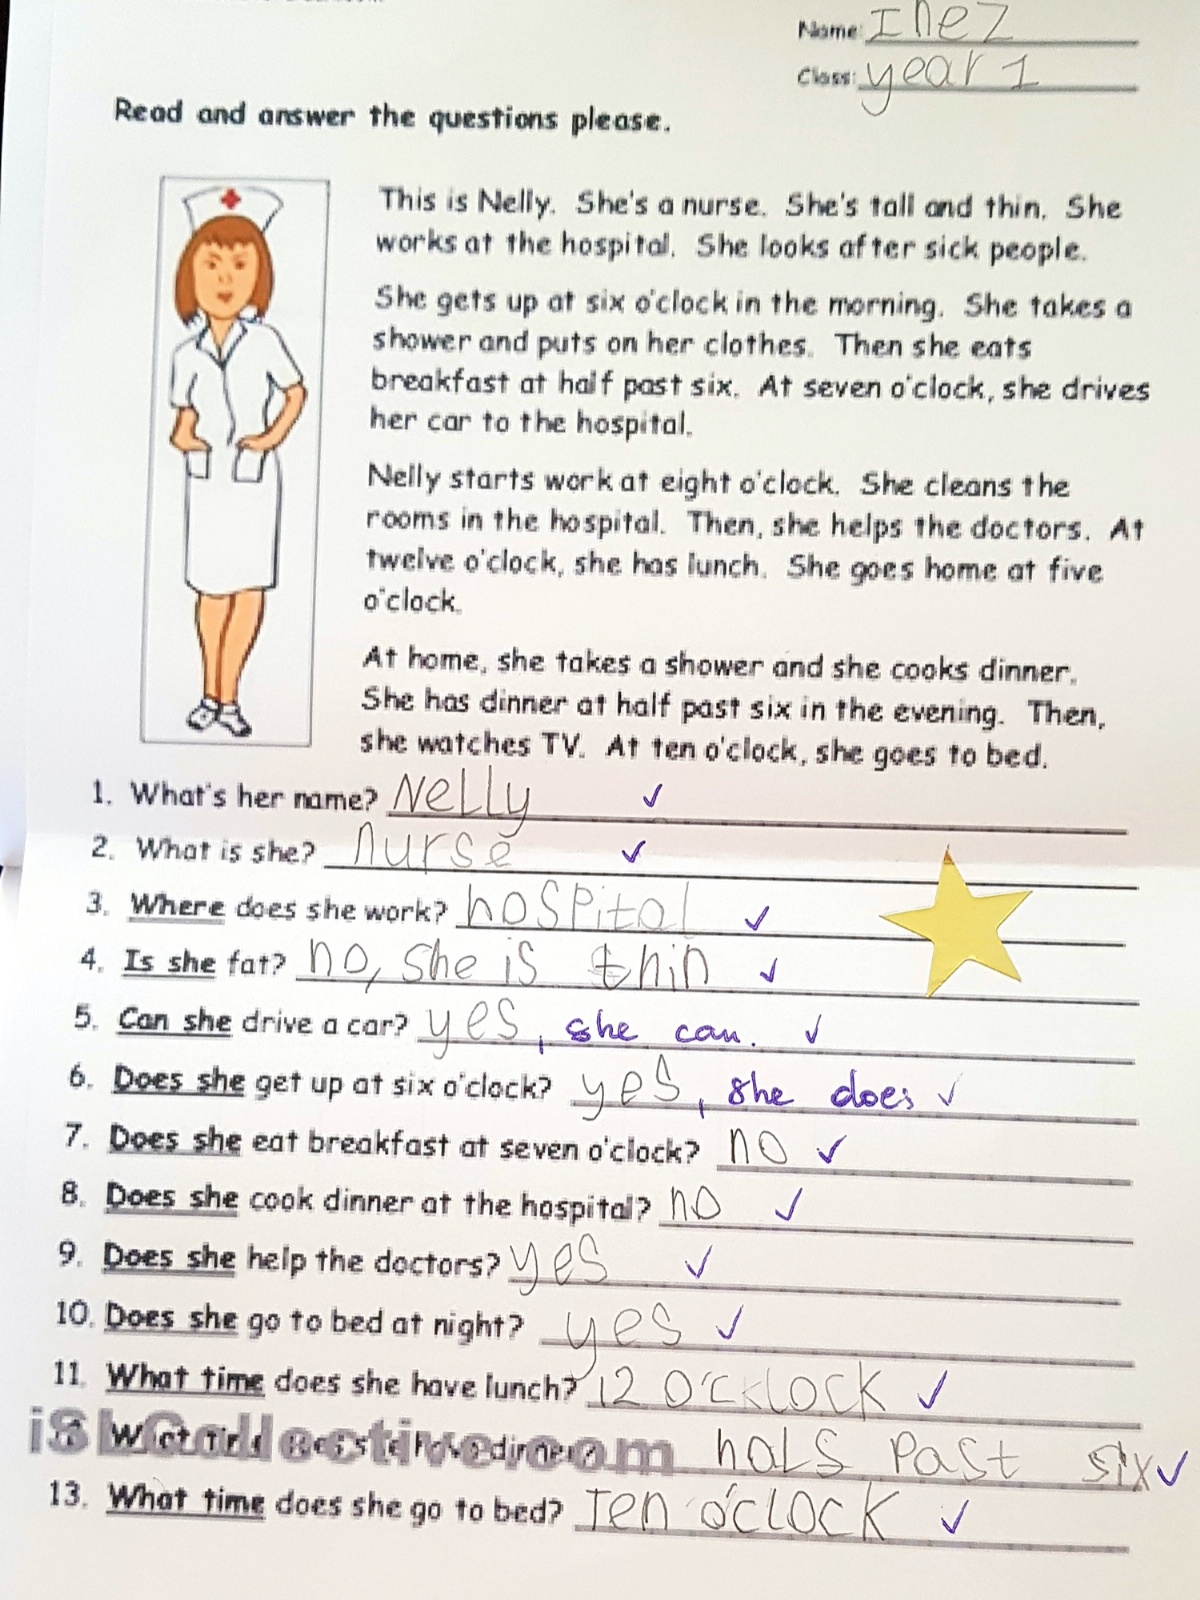 Name: Inez
Class: year 1
Read and answer the questions please.
This is Nelly. She's a nurse. She's tall and thin. She
works at the hospital. She looks after sick people.
She gets up at six o'clock in the morning. She takes a
shower and puts on her clothes. Then she eats
breakfast at half past six. At seven o'clock, she drives
her car to the hospital.
Nelly starts work at eight o'clock. She cleans the
rooms in the hospital. Then, she helps the doctors. At
twelve o'clock, she has lunch. She goes home at five
o'clock.
At home, she takes a shower and she cooks dinner.
She has dinner at half past six in the evening. Then,
she watches TV. At ten o'clock, she goes to bed.
1. What's her name? Nelly ✓
2. What is she? nurse ✓
3. Where does she work? hospital ✓
4. Is she fat? no, she is thin ✓
5. Can she drive a car? yes, she can. ✓
6. Does she get up at six o'clock? yes, she does ✓
7. Does she eat breakfast at seven o'clock? no ✓
8. Does she cook dinner at the hospital? no ✓
9. Does she help the doctors? yes ✓
10. Does she go to bed at night? yes ✓
11. What time does she have lunch? 12 O'CKLOCK ✓
iSLCollective.com halS Past six ✓
13. What time does she go to bed? Ten o'CLOCK ✓